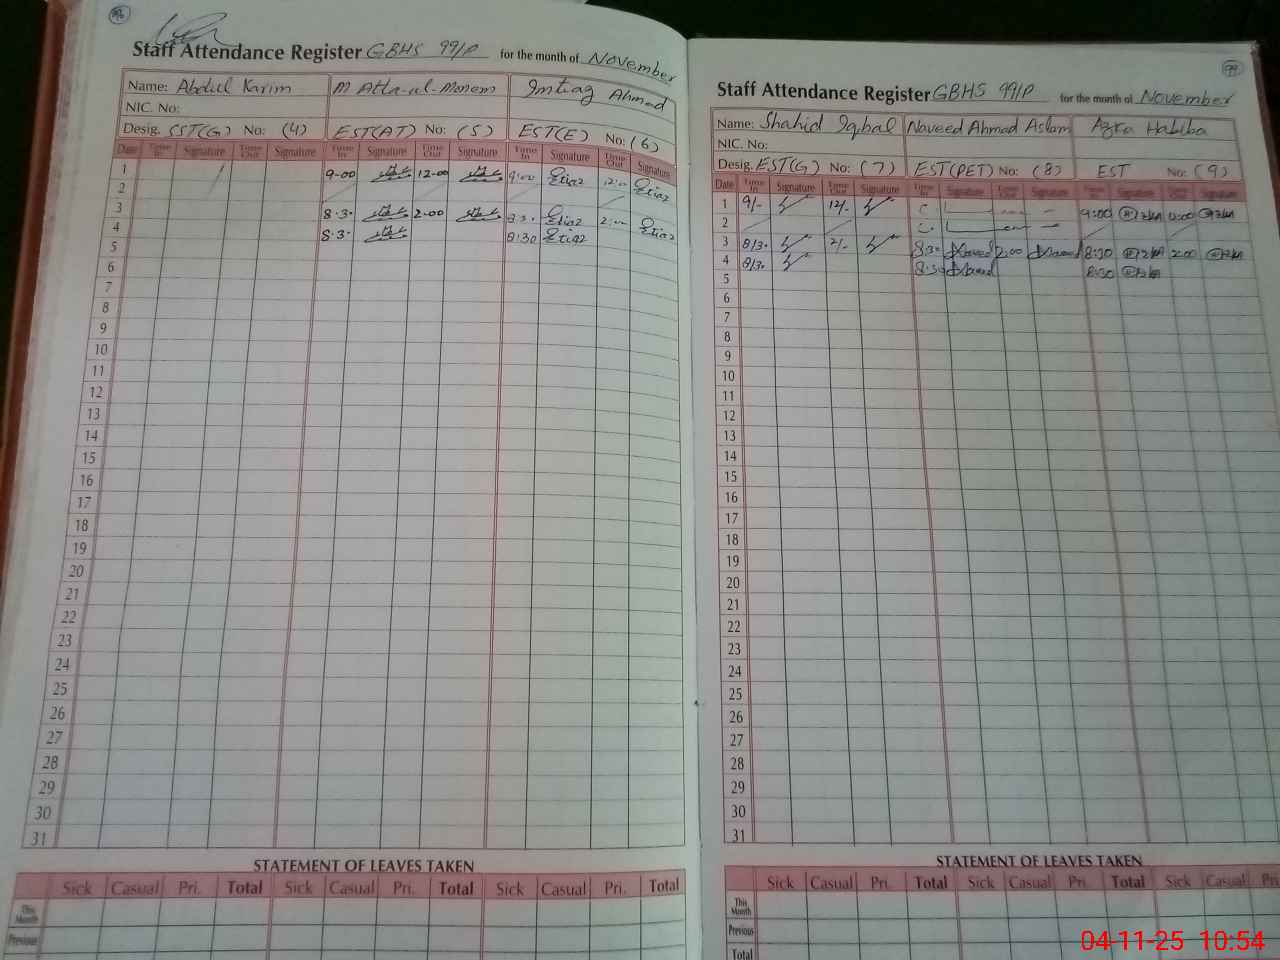 Staff Attendance Register GBHS 99/P for the month of November
Name: Abdul Karim M Atta-ul-Monem Imtiaz Ahmad
NIC. No:
Desig. SST(G) No: (4) EST(AT) No: (5) EST(E) No: (6)
Date Time In Signature Time Out Signature Time In Signature Time Out Signature Time In Signature Time Out Signature
1 9-00 12-00 9:00 12:00
2
3 8.30 2.00 8.30 2:00
4 8.30 8:30
5
6
7
8
9
10
11
12
13
14
15
16
17
18
19
20
21
22
23
24
25
26
27
28
29
30
31
STATEMENT OF LEAVES TAKEN
Sick Casual Pri. Total Sick Casual Pri. Total Sick Casual Pri. Total
This Month
Previous
99
Staff Attendance Register GBHS 99/P for the month of November
Name: Shahid Iqbal Naveed Ahmad Aslam Azka Habiba
NIC. No:
Desig. EST(G) No: (7) EST(PET) No: (8) EST No: (9)
Date Time In Signature Time Out Signature Time In Signature Time Out Signature Time In Signature Time Out Signature
1 9/- 12/- 9:00 12:00
2
3 8/30 2/- 8:30 2:00 8:30 2:00
4 8/30 8:30 8:30
5
6
7
8
9
10
11
12
13
14
15
16
17
18
19
20
21
22
23
24
25
26
27
28
29
30
31
STATEMENT OF LEAVES TAKEN
Sick Casual Pri. Total Sick Casual Pri. Total Sick Casual Pri.
This Month
Previous
Total
04-11-25 10:54